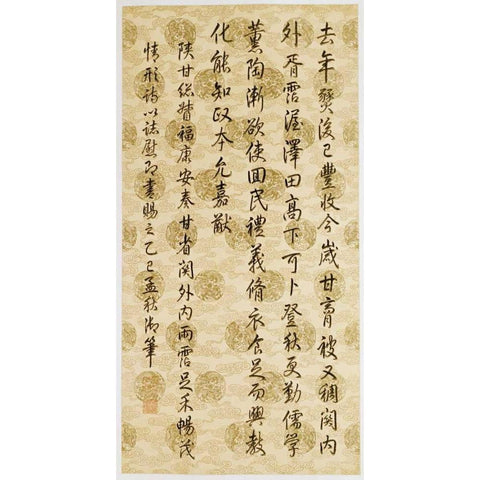 去年燹後已豐收今歲甘膏被又稠関内
外胥霑渥澤田高下可卜登秋更勤儒学
薰陶漸欲使囬民禮義脩衣食足而興教
化能知政本允嘉猷
陝甘総督福康安奏甘省関外内雨霑足禾暢茂
情形詩以誌慰即書賜之乙巳孟秋御筆